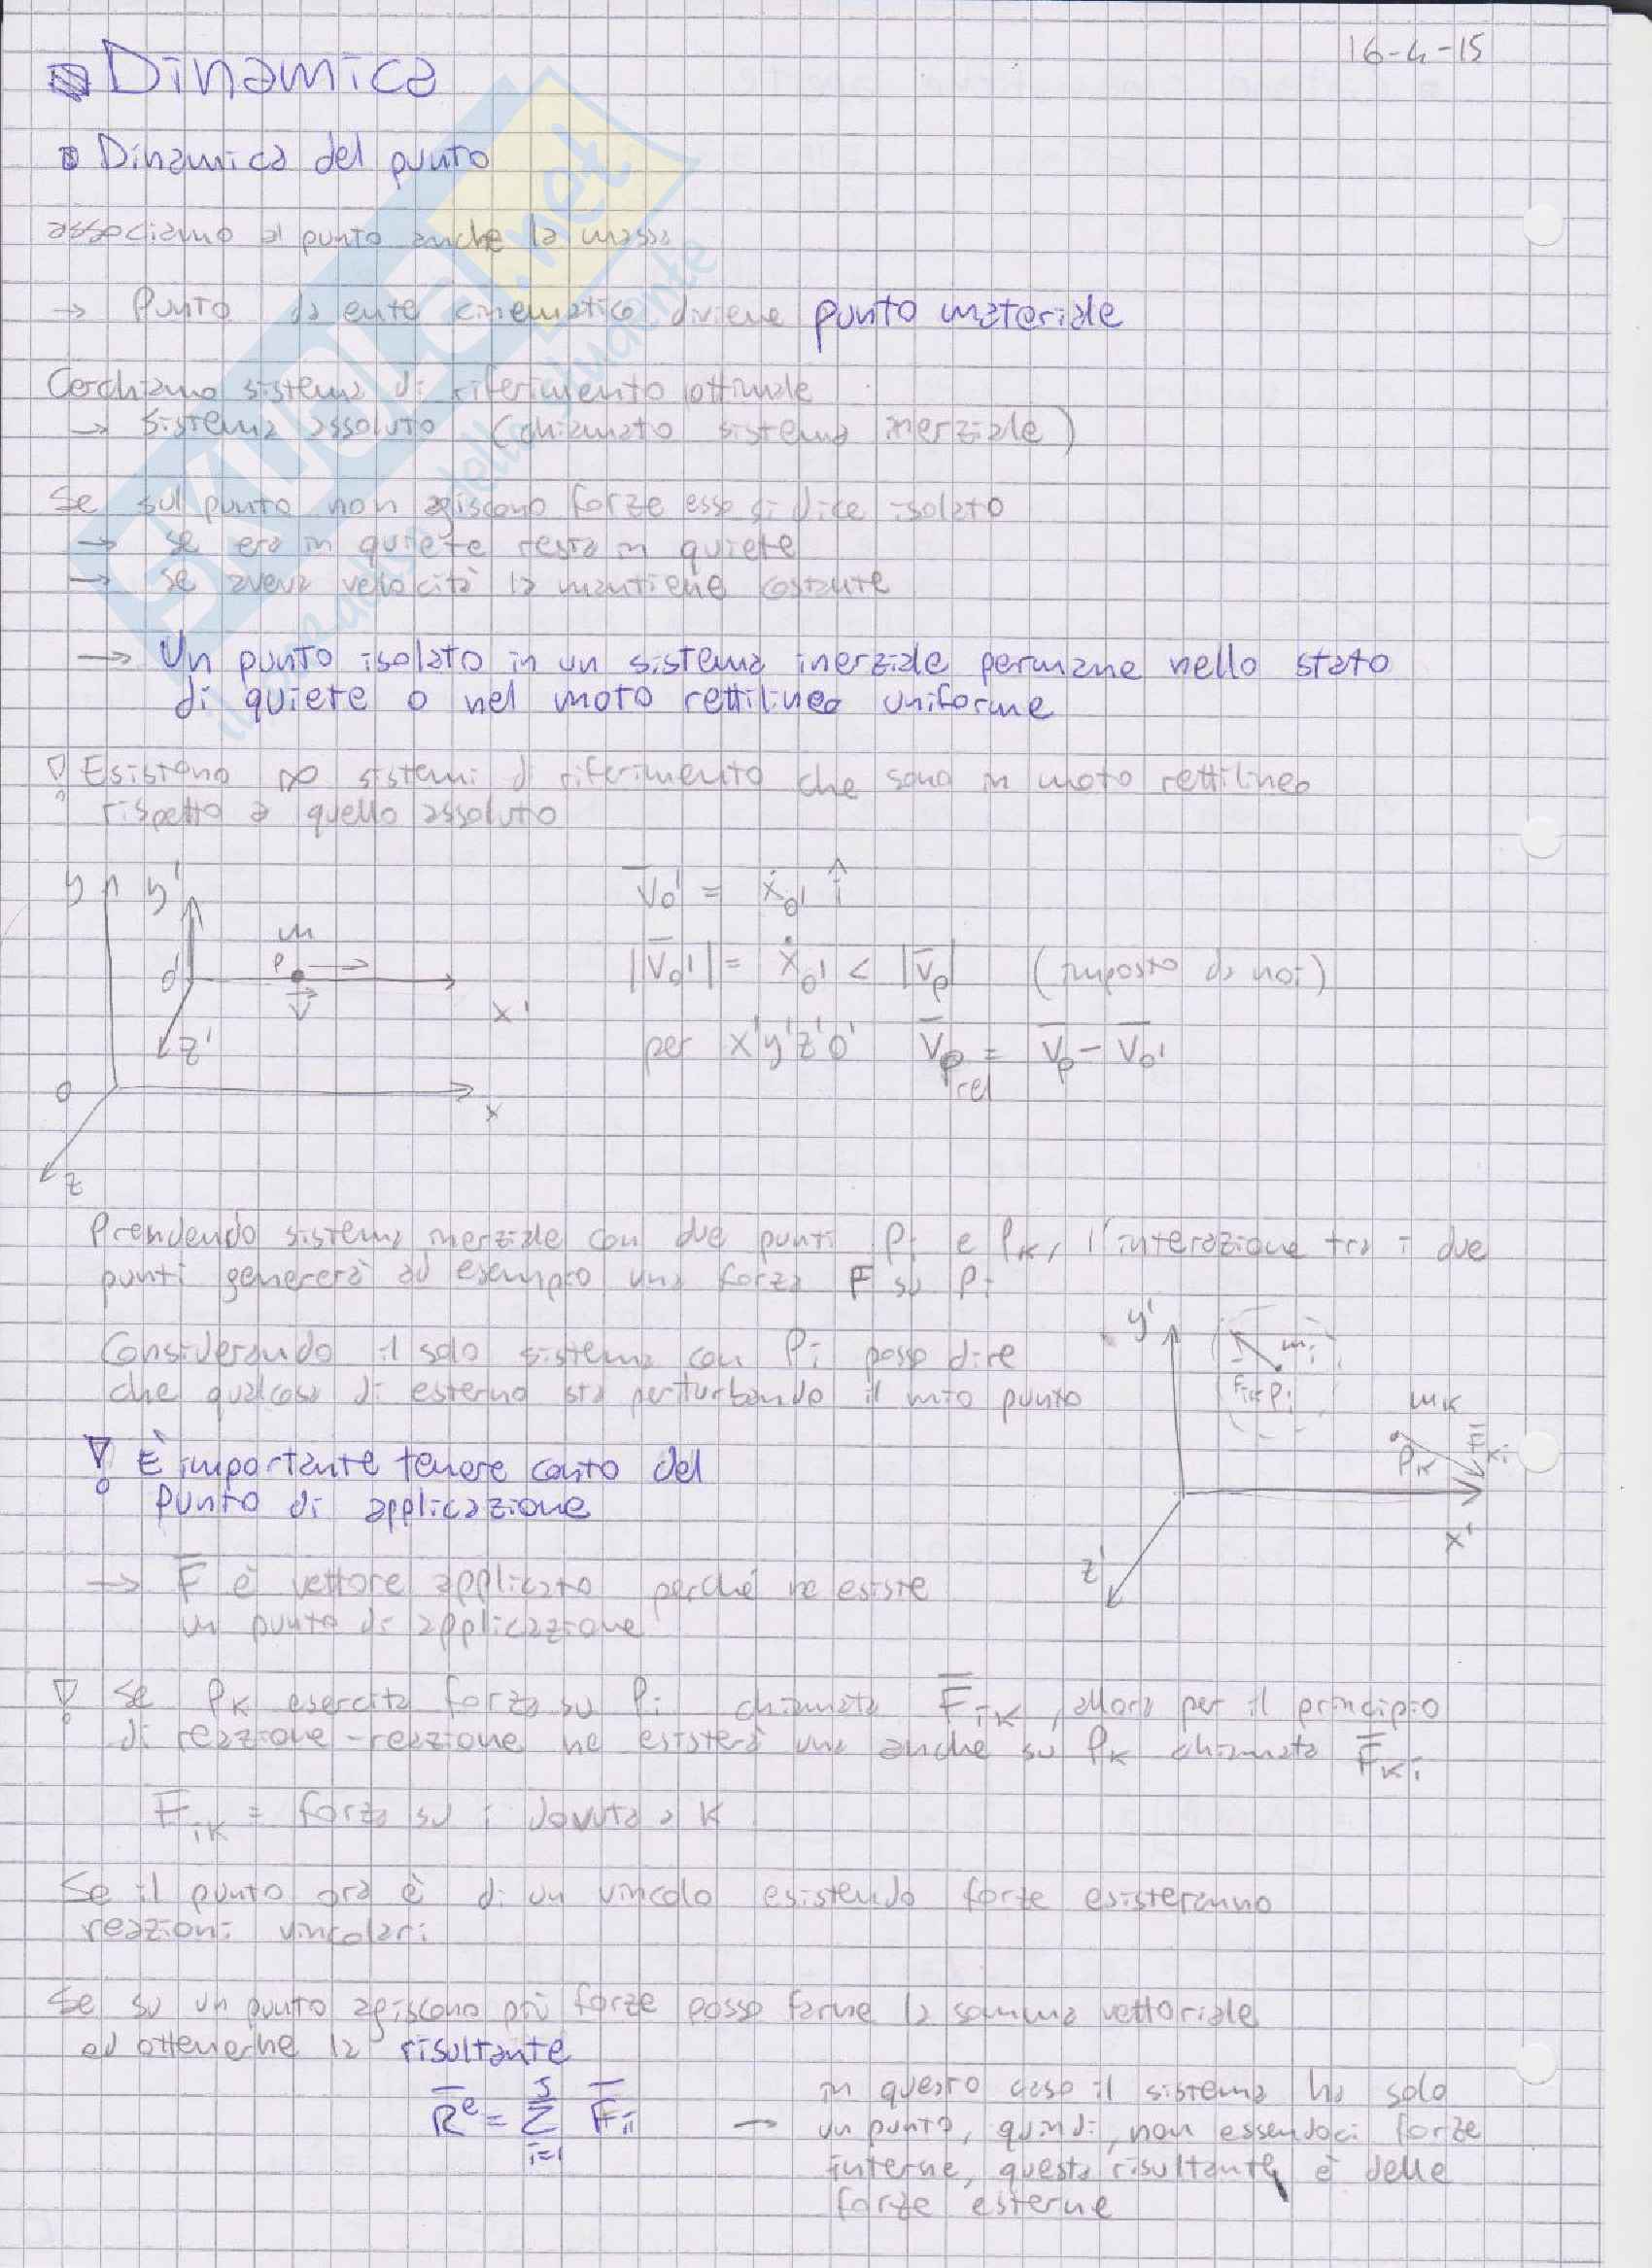 16-4-15
Dinamica
Dinamica del punto
associamo al punto anche la massa
→ Punto da ente cinematico diviene punto materiale
Cerchiamo sistema di riferimento ottimale
→ sistema assoluto (chiamato sistema inerziale)
Se sul punto non agiscono forze esso si dice isolato
→ se era in quiete resta in quiete
→ se aveva velocità la mantiene costante
→ Un punto isolato in un sistema inerziale permane nello stato
di quiete o nel moto rettilineo uniforme
Esistono ∞ sistemi di riferimento che sono in moto rettilineo
rispetto a quello assoluto
y y' m P O' x' z' v O x z
V̅o' = ẋo' î
|V̅o'| = ẋo' < |V̅p| (imposto da noi)
per x'y'z'O' V̅p rel = V̅p - V̅o'
Prendendo sistema inerziale con due punti Pi e PK, l'interazione tra i due
punti genererà ad esempio una forza F su Pi
Considerando il solo sistema con Pi posso dire
che qualcosa di esterno sta perturbando il mio punto
y' mi F̅iK Pi mK PK F̅Ki x' z'
È importante tenere conto del
punto di applicazione
→ F̅ è vettore applicato perché ne esiste
un punto di applicazione
Se PK esercita forza su Pi chiamata F̅iK, allora per il principio
di reazione-reazione ne esisterà una anche su PK chiamata F̅Ki
F̅iK = forza su i dovuta a K
Se il punto ora è di un vincolo esistendo forze esisteranno
reazioni vincolari
Se su un punto agiscono più forze posso farne la somma vettoriale
ed ottenerne la risultante
R̅ᵉ = Σ i=1 s F̅i → in questo caso il sistema ha solo
un punto, quindi, non essendoci forze
interne, questa risultante è delle
forze esterne
SKUOLA.net
il paradiso dello studente